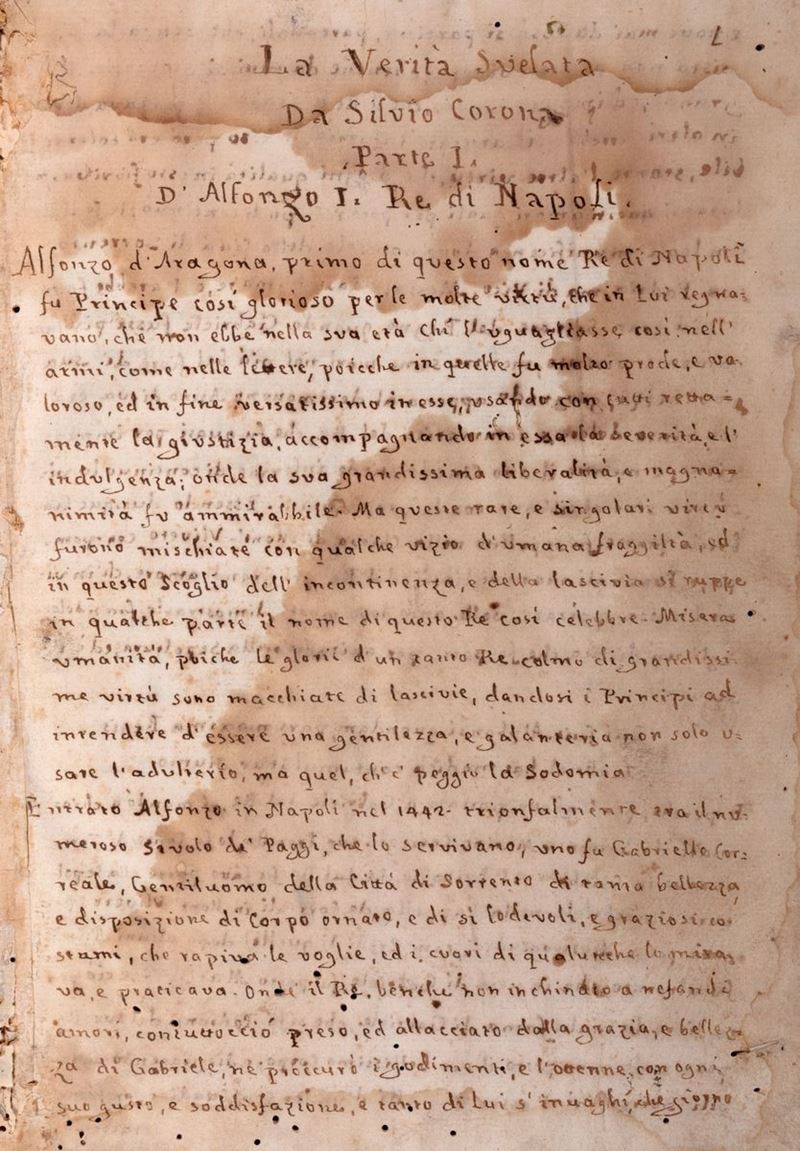 1
La Verità Svelata
Da Silvio Corona
Parte I.
D' Alfonzo I. Re di Napoli.
Alfonzo d'Aragona, primo di questo nome Re di Napoli
fu Principe così glorioso per le molte virtù, che in lui regna-
vano, che non ebbe nella sua età chi l'uguagliasse così nell'
armi, come nelle lettere, poicche in quelle fu molto prode, e va-
loroso, ed in fine versatissimo in esse, usando con tutti retta=
mente la giustizia, accompagnando in essa la severità, e l'
indulgenza, onde la sua grandissima liberalità, e magna=
nimità fu ammirabbile. Ma queste rare, e singolari virtù
furono mischiate con qualche vizio d'umana fraggilità, ed
in questo Scoglio dell' incontinenza, e della lascivia si ruppe
in qualche parte il nome di questo Re così celebbre. Misera
umanità, poiche le glorie d'un tanto Re colmo di grandissi-
me virtù sono macchiate di lascivie, dandosi i Principi ad
intendere d'essere una gentilezza, e galanteria non solo u-
sare l'adulterio, ma quel, ch'è peggio la Sodomia
Entrato Alfonzo in Napoli nel 1442. trionfalmente, tra il nu-
meroso stuolo de' Paggi, che lo servivano, uno fu Gabriele Cor-
reale, Gentiluomo della Città di Sorrento di tanta bellezza
e disposizione di Corpo ornato, e di sì lodevoli, e graziosi co-
stumi, che rapiva le voglie, ed i cuori di qualunche lo mira-
va, e praticava. Onde il Re, benche non inchinato a nefandi
amori, contuttocciò preso, ed allacciato dalla grazia, e bellez-
za di Gabriele, ne procurò i godimenti, e l'ottenne, con ogni
suo gusto, e soddisfazione, e tanto di lui s'invaghì, che giorno